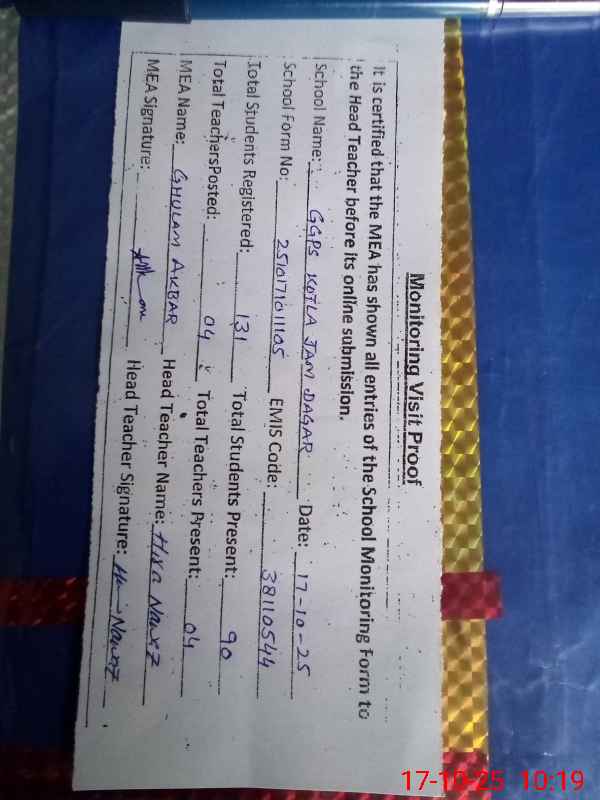 Monitoring Visit Proof
It is certified that the MEA has shown all entries of the School Monitoring Form to
the Head Teacher before its online submission.
School Name: GGPS KOTLA JAM DAGAR Date: 17-10-25
School Form No: 251017101105 EMIS Code: 38110544
Total Students Registered: 131 Total Students Present: 90
Total TeachersPosted: 04 Total Teachers Present: 04
MEA Name: GHULAM AKBAR Head Teacher Name: Hira Nawaz
MEA Signature: Head Teacher Signature:
17-10-25 10:19